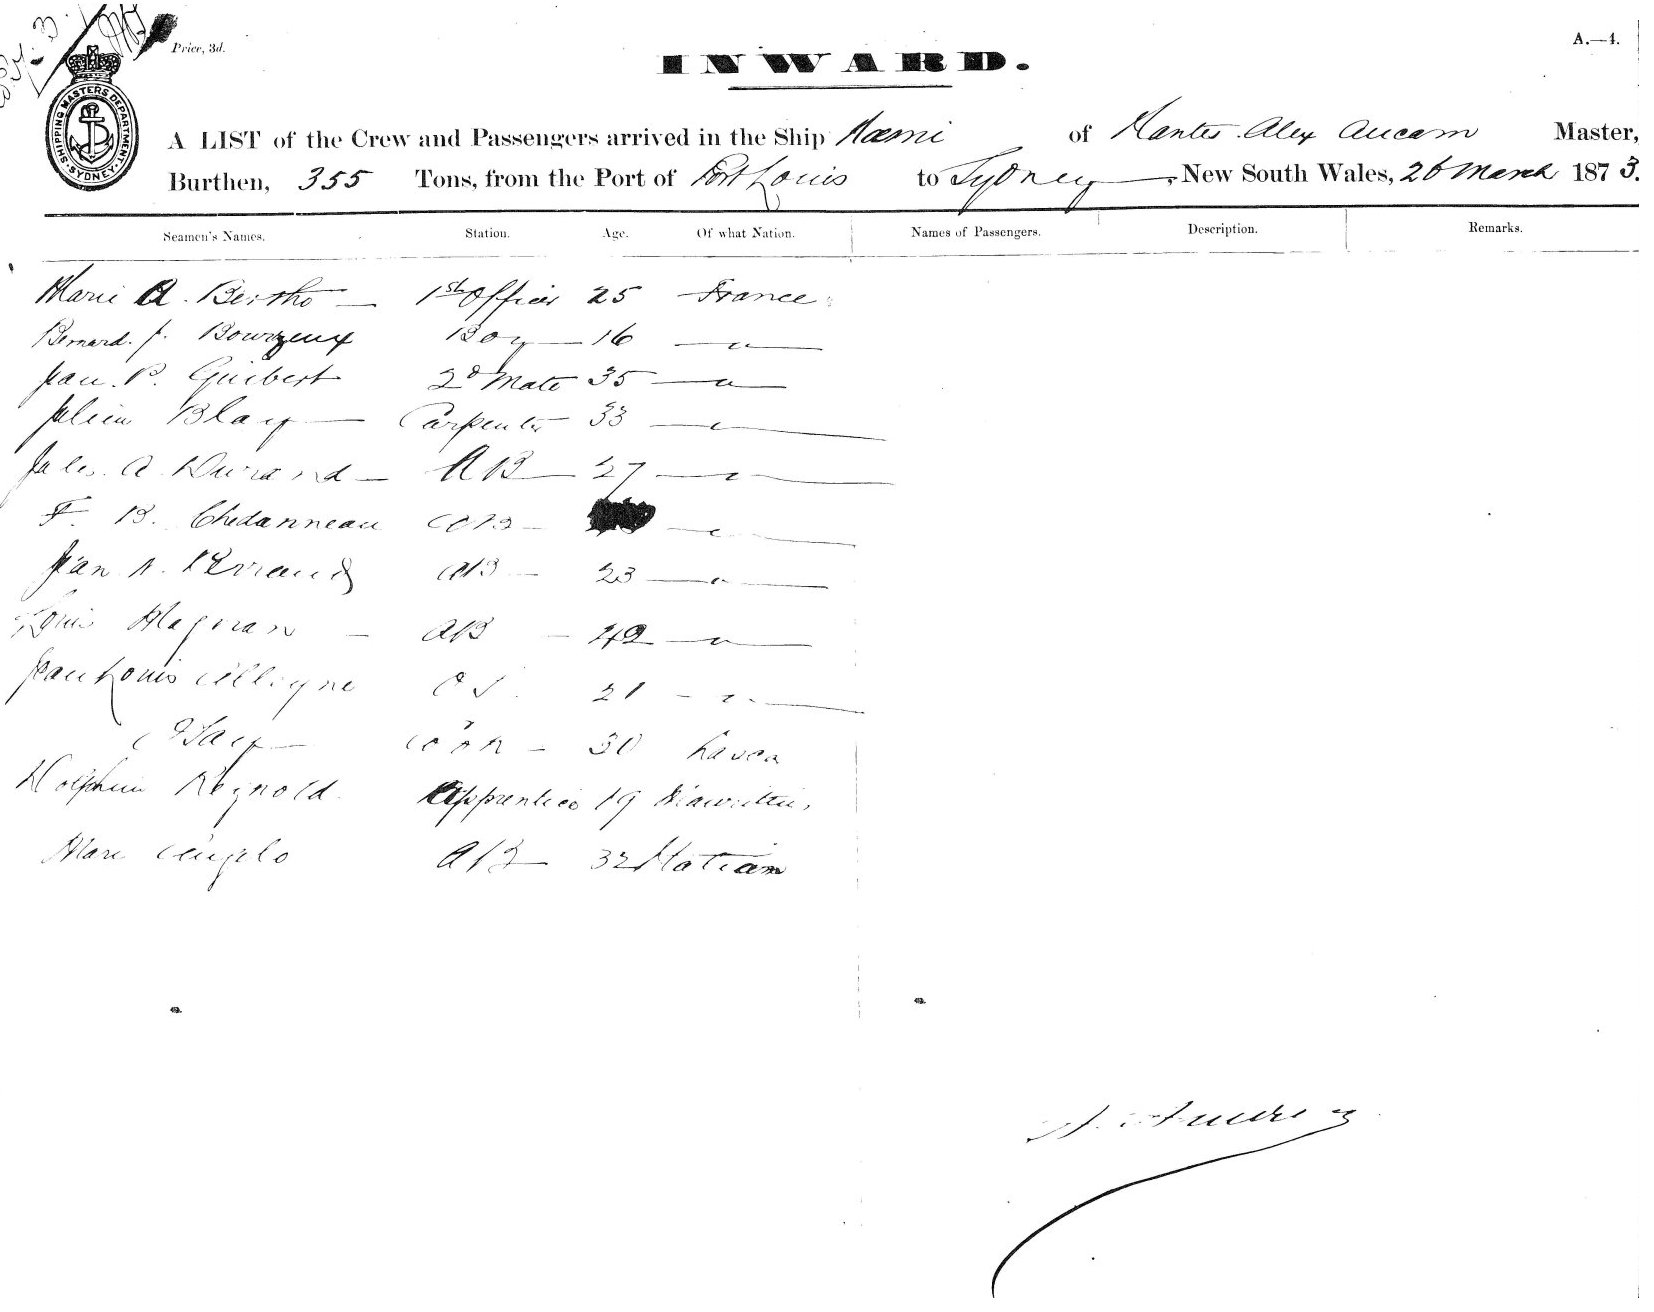 Price, 3d.
A.—4.
INWARD.
SHIPPING MASTERS DEPARTMENT SYDNEY
A LIST of the Crew and Passengers arrived in the Ship Nœmi of Nantes Alex Aucam Master,
Burthen, 355 Tons, from the Port of Port Louis to Sydney, New South Wales, 26 March 1873.
Seamen's Names. Station. Age. Of what Nation. Names of Passengers. Description. Remarks.
Marie A. Bertho 1st Officer 25 France
Bernard. J. Bourzeux Boy 16 "
Jean. P. Guibert 2d Mate 35 "
Julien Blay Carpenter 33 "
Jules. A. Durand AB 27 "
F. B. Chedanneau AB "
Jean AB 23 "
Louis Magnan AB 42 "
Jean Louis OS. 21 "
Cook 30
Reynold Apprentice 19 Mauritius
Marc Angelo AB 32